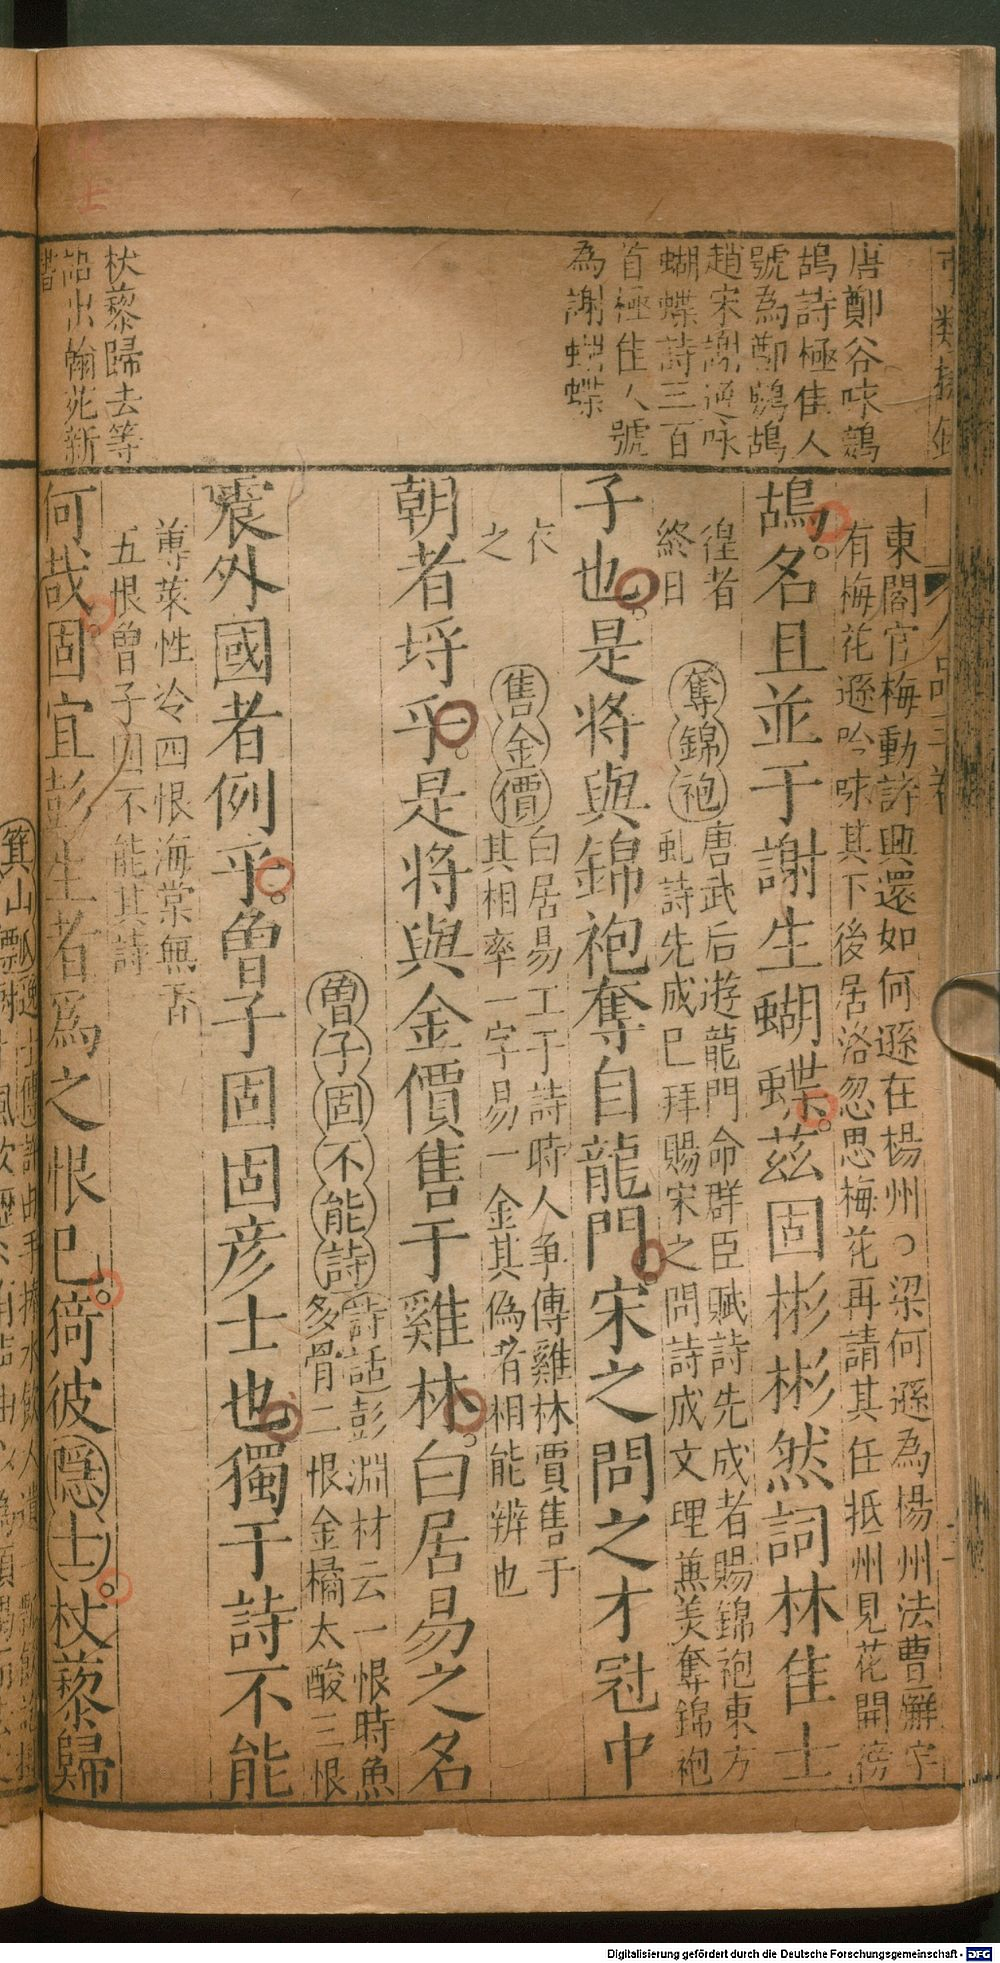 唐鄭谷咏鷓
鴣詩極佳人
號為鄭鷓鴣
趙宋謝逸咏
蝴蝶詩三百
首極佳人號
為謝蝴蝶
杖藜歸去等
詔出翰苑新
東閣官梅動詩興還如何遜在楊州○梁何遜為楊州法曹廨宇
有梅花遜吟咏其下後居洛忽思梅花再請其任抵州見花開徬
鴣名且並于謝生蝴蝶茲固彬彬然詞林佳士
徨者
終日
奪錦袍
唐武后遊龍門命群臣賦詩先成者賜錦袍東方
虬詩先成已拜賜宋之問詩成文理兼美奪錦袍
子也是将與錦袍奪自龍門宋之問之才冠中
衣
之
售金價
白居易工于詩時人争傳雞林賈售于
其相率一字易一金其偽者相能辨也
朝者埒乎是将與金價售于雞林白居易之名
曾子固不能詩
詩話彭淵材云一恨時魚
多骨二恨金橘太酸三恨
震外國者例乎曾子固固彦士也獨于詩不能
蓴菜性冷四恨海棠無香
五恨曾子固不能其詩
何哉固宜彭生者爲之恨已猗彼隱士杖藜歸
Digitalisierung gefördert durch die Deutsche Forschungsgemeinschaft - DFG